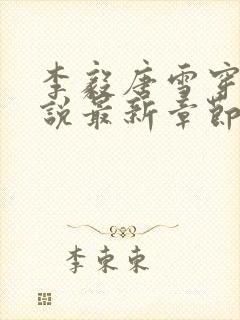 李毅唐雪穿
说最新章节
李東東